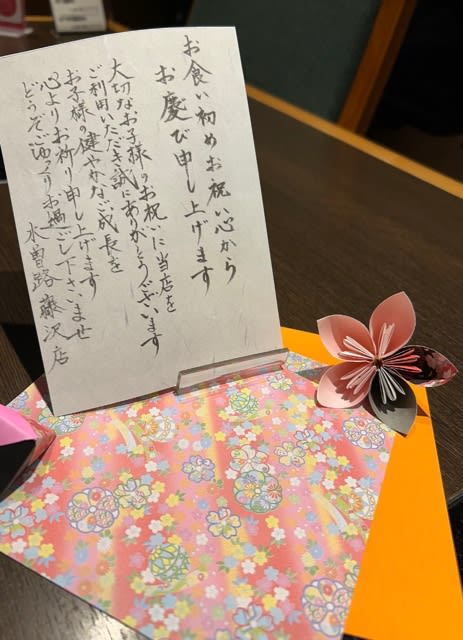 お食い初めお祝い心から
お慶び申し上げます
大切なお子様のお祝いに当店を
ご利用いただき誠にありがとうございます
お子様の健やかなご成長を
心よりお祈り申し上げます
どうぞごゆっくりお過ごし下さいませ
木曽路 藤沢店